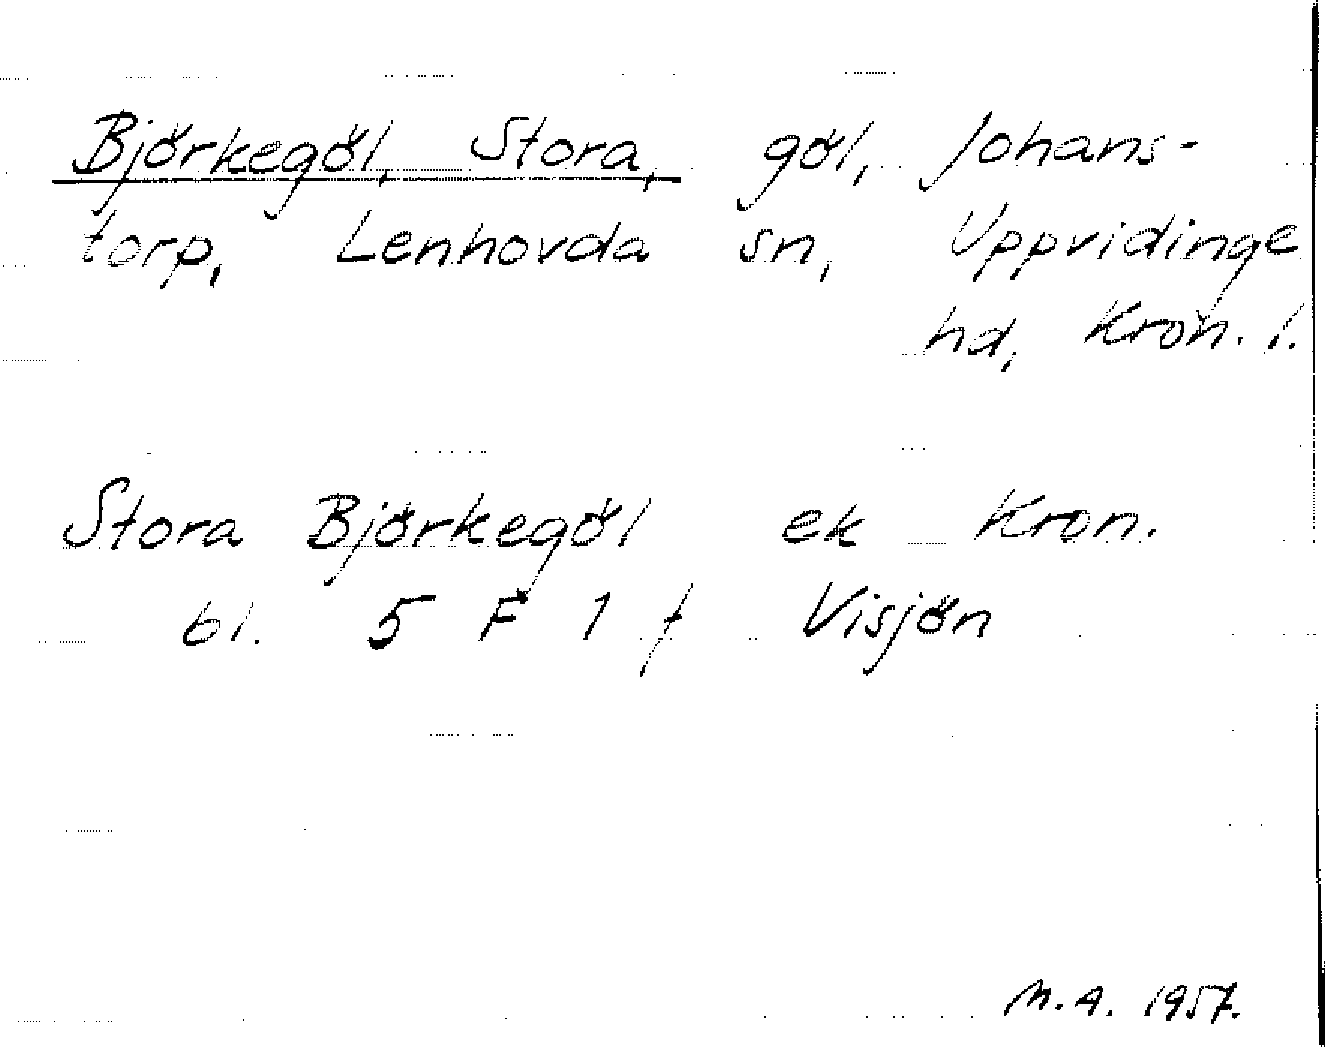 Björkegöl, Stora, göl, Johans-
torp, Lenhovda sn, Uppvidinge
hd, Kron. l.
Stora Björkegöl ek Kron.
bl. 5 F 1 f Visjön
M.A. 1957.